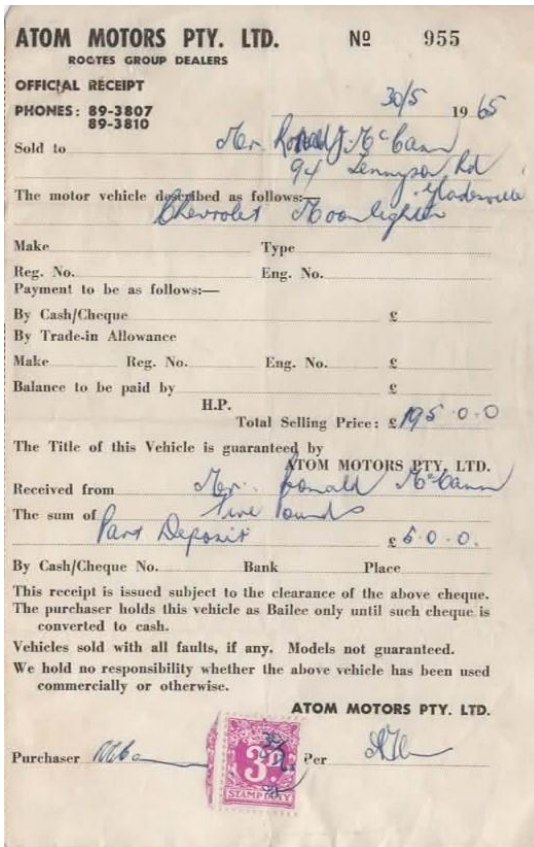 ATOM MOTORS PTY. LTD. Nº 955
ROOTES GROUP DEALERS
OFFICIAL RECEIPT
PHONES: 89-3807
89-3810
30/5 1965
Sold to Mr. Ronald J. McCann
94 Tennyson Rd
Gladesville
The motor vehicle described as follows:—
Chevrolet Moonlighter
Make Type
Reg. No. Eng. No.
Payment to be as follows:—
By Cash/Cheque £
By Trade-in Allowance
Make Reg. No. Eng. No. £
Balance to be paid by £
H.P.
Total Selling Price: £195.0.0
The Title of this Vehicle is guaranteed by
ATOM MOTORS PTY. LTD.
Received from Mr. Ronald McCann
The sum of Five Pounds
Part Deposit £5.0.0.
By Cash/Cheque No. Bank Place
This receipt is issued subject to the clearance of the above cheque.
The purchaser holds this vehicle as Bailee only until such cheque is
converted to cash.
Vehicles sold with all faults, if any. Models not guaranteed.
We hold no responsibility whether the above vehicle has been used
commercially or otherwise.
ATOM MOTORS PTY. LTD.
Purchaser Per
3D
STAMP DUTY